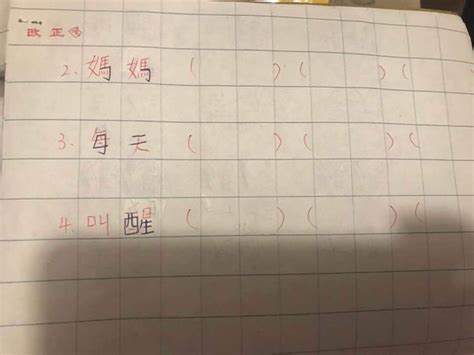 改正
2. 媽媽 (   ) (   ) (
3. 每天 (   ) (   ) (
4. 叫醒 (   ) (   ) (